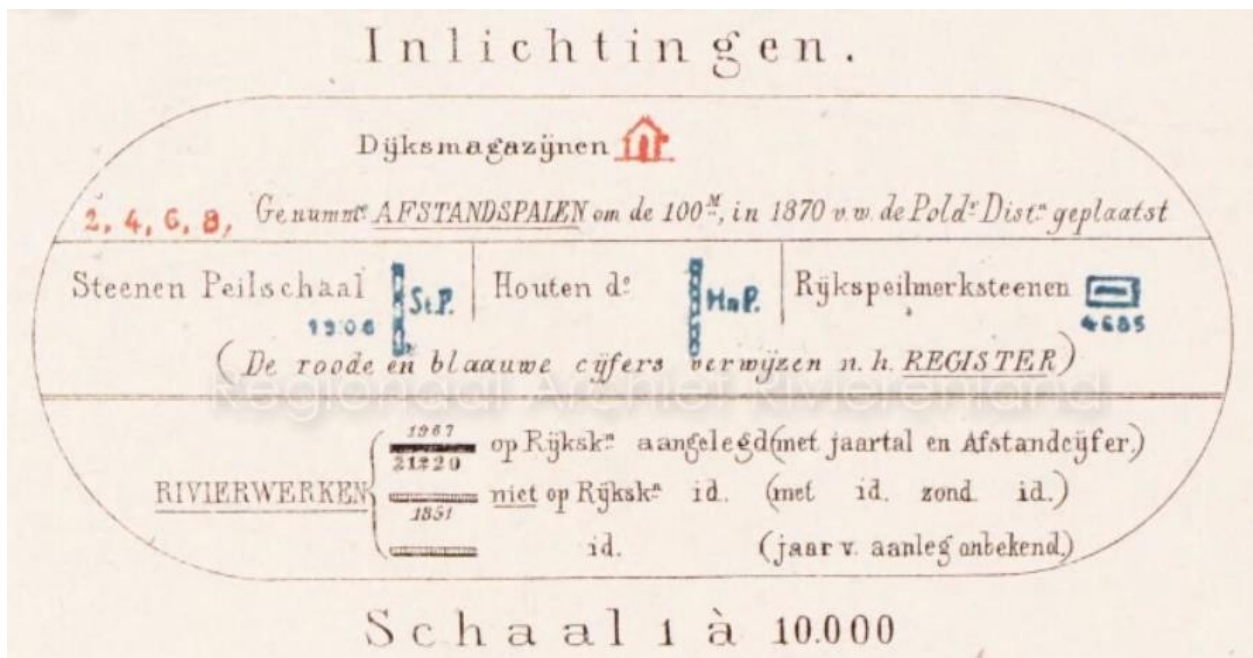 Inlichtingen.
Dijksmagazijnen
2, 4, 6, 8, Genummde AFSTANDSPALEN om de 100 M, in 1870 v.w. de Poldr Distn geplaatst
Steenen Peilschaal St.P. Houten do HnP. Rijkspeilmerksteenen
1906 4685
(De roode en blaauwe cijfers verwijzen n. h. REGISTER)
Regionaal Archief Rivierenland
1967 op Rijkskn aangelegd (met jaartal en Afstandcijfer.)
21220
RIVIERWERKEN niet op Rijkskn id. (met id. zond id.)
1851
id. (jaar v. aanleg onbekend.)
Schaal 1 à 10.000